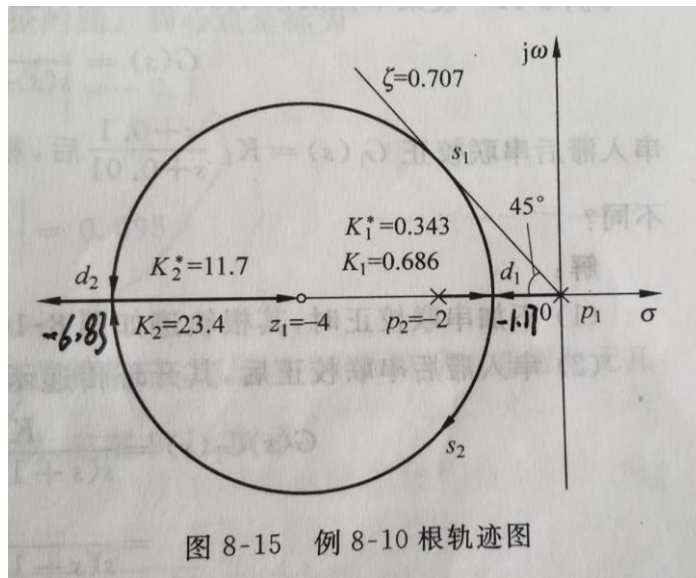 jω
ζ=0.707
s₁
45°
K₁*=0.343
K₁=0.686
d₂
K₂*=11.7
d₁
-6.83
K₂=23.4
z₁=-4
p₂=-2
-1.17
0
p₁
σ
s₂
图 8-15 例 8-10 根轨迹图